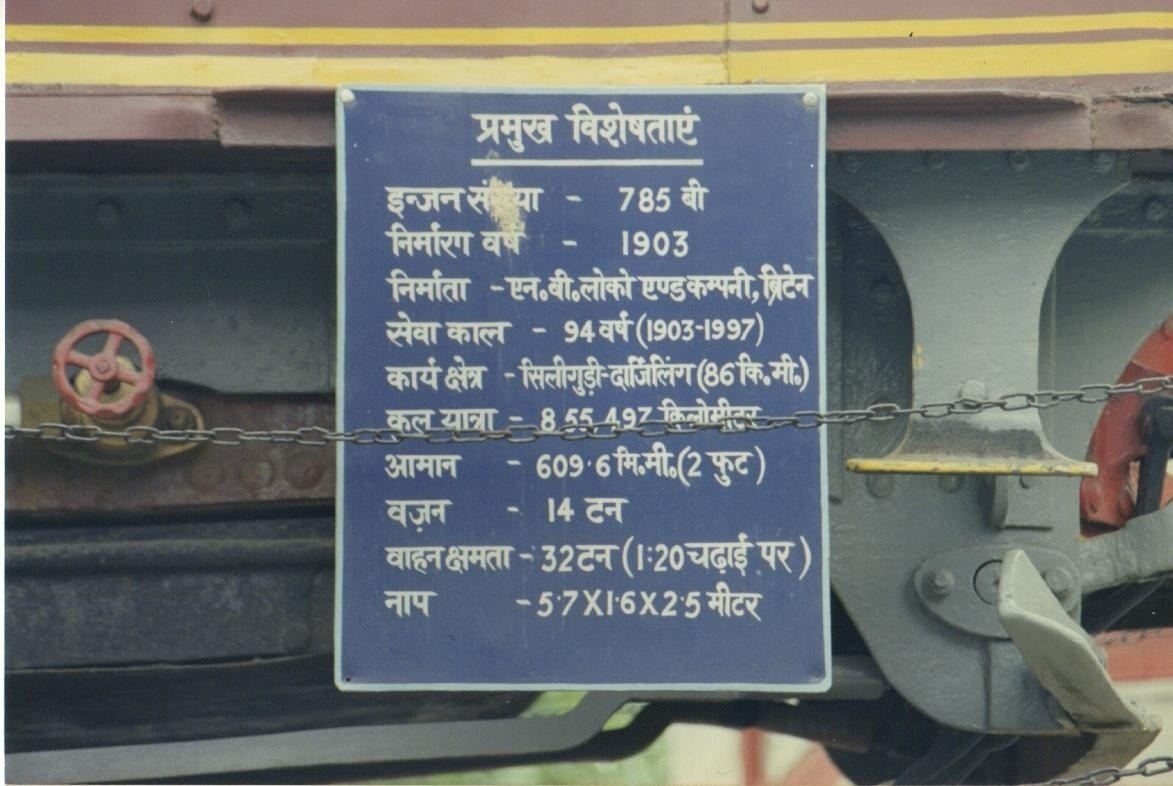 प्रमुख विशेषताएं
इन्जन संख्या - 785 बी
निर्माण वर्ष - 1903
निर्माता - एन॰बी॰लोको एण्ड कम्पनी, ब्रिटेन
सेवा काल - 94 वर्ष (1903-1997)
कार्य क्षेत्र - सिलीगुड़ी-दार्जिलिंग (86 कि.मी.)
कुल यात्रा - 8,55,497 किलोमीटर
आमान - 609·6 मि.मी. (2 फुट)
वज़न - 14 टन
वाहन क्षमता - 32 टन (1:20 चढ़ाई पर)
नाप - 5·7X1·6X2·5 मीटर